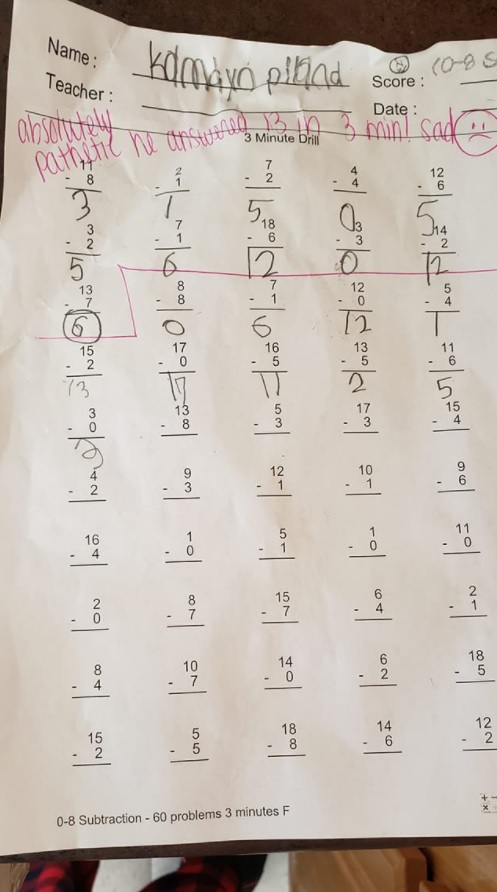 Name : Kamdyn piland Score : (0-8 S
Teacher : Date :
absolutely
pathetic he answered 13 in 3 min! sad
3 Minute Drill
11 2 7 4 12
- 8 - 1 - 2 - 4 - 6
3 1 5 0 5
3 7 18 3 14
- 2 - 1 - 6 - 3 - 2
5 6 12 0 12
13 8 7 12 5
- 7 - 8 - 1 - 0 - 4
6 0 6 12 1
15 17 16 13 11
- 2 - 0 - 5 - 5 - 6
13 17 11 2 5
3 13 5 17 15
- 0 - 8 - 3 - 3 - 4
3
4 9 12 10 9
- 2 - 3 - 1 - 1 - 6
16 1 5 1 11
- 4 - 0 - 1 - 0 - 0
2 8 15 6 2
- 0 - 7 - 7 - 4 - 1
8 10 14 6 18
- 4 - 7 - 0 - 2 - 5
15 5 18 14 12
- 2 - 5 - 8 - 6 - 2
0-8 Subtraction - 60 problems 3 minutes F